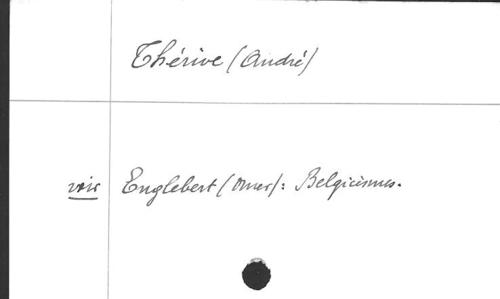 Thérive (André)
voir Englebert (Omer) : Belgicismes.